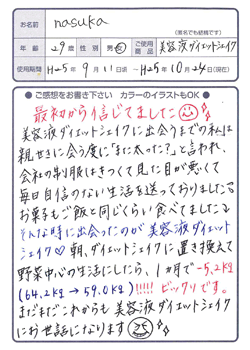 お名前 nasuka
(匿名でも結構です)
年齢 29歳 性別 男・女 ご使用商品 美容液ダイエットシェイク
使用期間 H25年9月11日頃 ～ H25年10月24日(現在)
●ご感想をお書き下さい カラーのイラストもOK●
最初から信じてました
美容液ダイエットシェイクに出会うまでの私は
親せきに会う度に「また太った?」と言われ、
会社の制服はきつくて見た目が悪くて
毎日自信のない生活を送っておりました。
お菓子もご飯と同じくらい食べてました。
そんな時に出会ったのが美容液ダイエット
シェイク♡朝、ダイエットシェイクに置き換えて
野菜中心の生活にしたら、1ヵ月で-5.2kg
(64.2kg→59.0kg)!!!!! ビックリです。
まだまだこれからも美容液ダイエットシェイク
にお世話になります